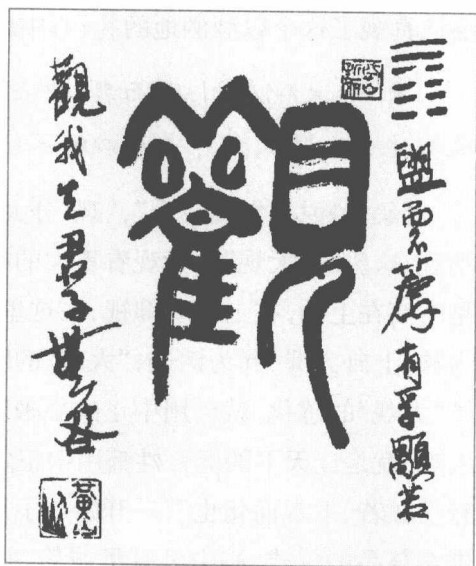 盥而不薦有孚顒若
觀
觀我生君子無咎